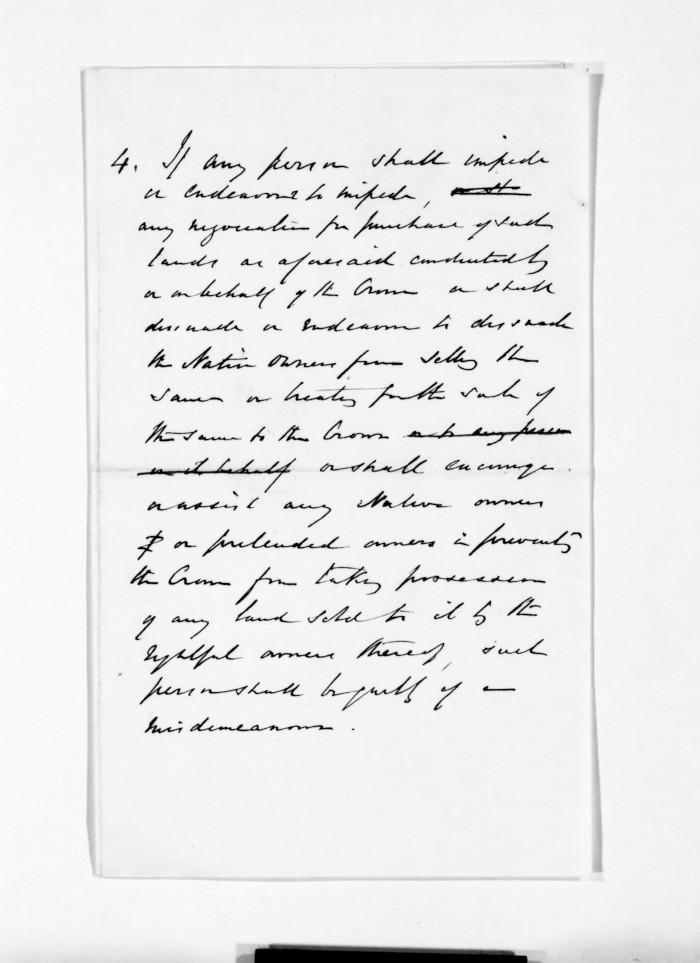 4. If any person shall impede
or endeavour to impede,
any negociation for purchase of such
lands as aforesaid conducted by
or on behalf of the Crown or shall
dissuade or endeavour to dissuade
the Native owners from selling the
same or treating for the sale of
the same to the Crown or to any person
on its behalf or shall encourage
or assist any Native owners
or pretended owners in preventing
the Crown from taking possession
of any land sold to it by the
rightful owners thereof, such
person shall be guilty of a
misdemeanour.